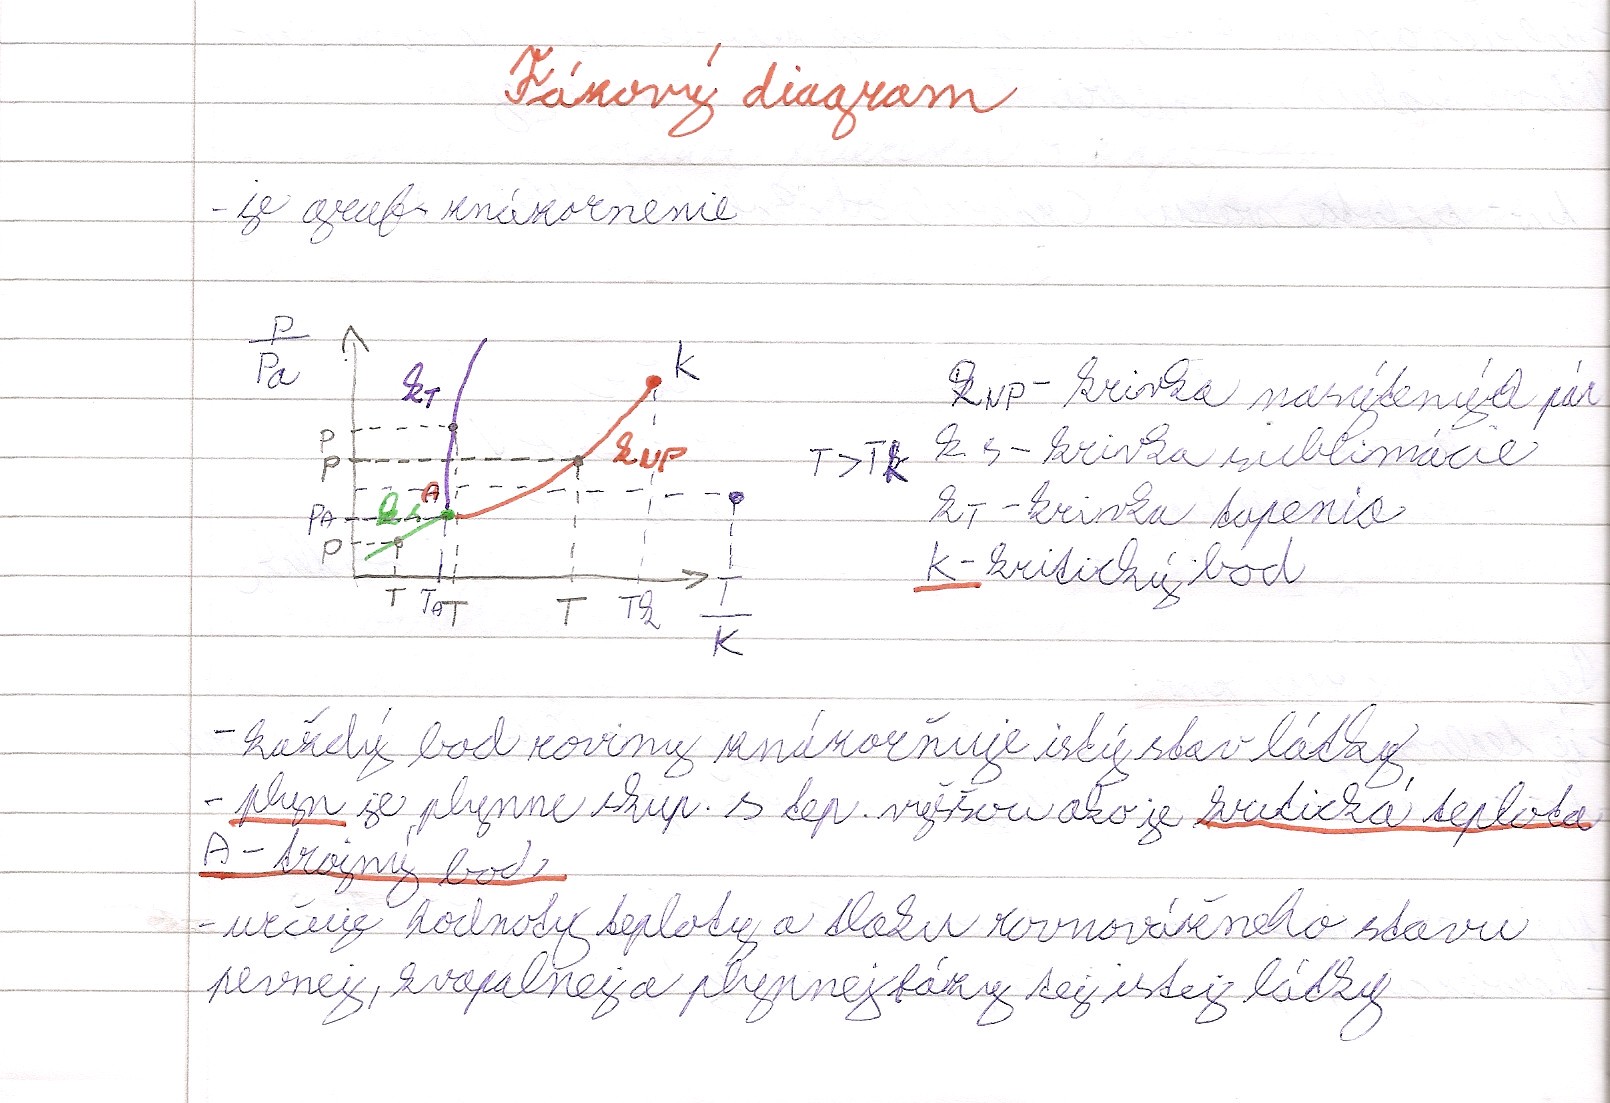 Fázový diagram
- je graf. znázornenie
p
Pa
kT
K
p
p
kNP
A
pA
ks
p
T
TA
T
T
Tk
T
K
kNP - krivka nasýtených pár
T > Tk
ks - krivka sublimácie
kT - krivka topenia
K - kritický bod
- každý bod roviny znázorňuje istý stav látky
- plyn je plynne skup. s tep. vyššou ako je kritická teplota
A - trojný bod
- určuje hodnoty teploty a tlaku rovnovážneho stavu
pevnej, kvapalnej a plynnej fázy tej istej látky